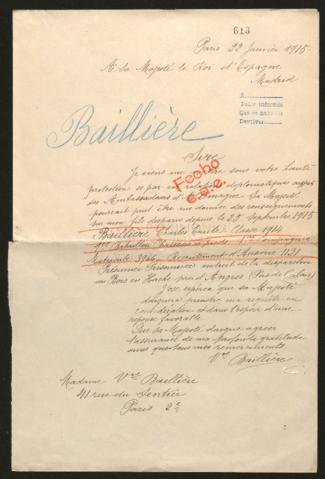 613
Paris 22 Janvier 1915
A Sa Majesté le Roi d'Espagne
Madrid
Baillière
Sire
Je viens me sous votre haute
protection si par vos relations diplomatiques auprès
des Ambassadeurs d'Allemagne Sa Majesté
pourrait peut être me donner des renseignements
sur mon fils disparu depuis le 25 Septembre 1915
Fecho
Baillière Charles Emile Classe 1914
Bataillon Chasseurs à pieds Compagnie
Matricule Recrutement d'Auxerre 1131
Présumé Prisonnier environs de la disparition
au Bois en Hache près d'Angres (Pas de Calais)
J'ose espérer que sa Majesté
daignera prendre ma requête en
considération et dans l'espoir d'une
réponse favorable
Que Sa Majesté daigne agréer
l'assurance de ma profonde gratitude
avec remerciements
Vve Baillière
Madame Vve Baillière
41 rue du Sentier
Paris 2e